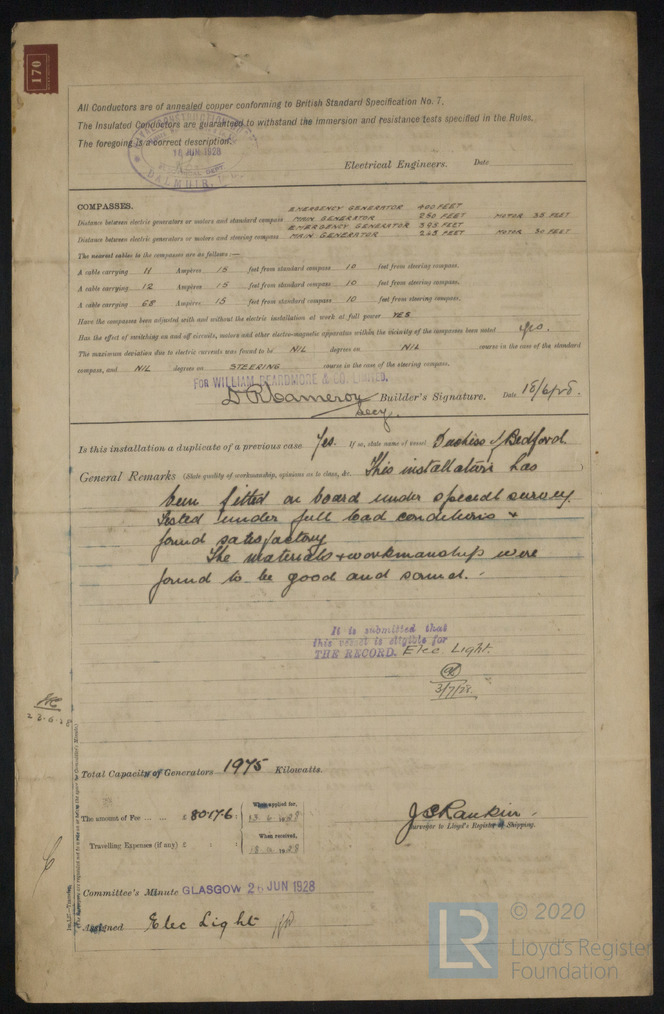 170
All Conductors are of annealed copper conforming to British Standard Specification No. 7.
The Insulated Conductors are guaranteed to withstand the immersion and resistance tests specified in the Rules.
The foregoing is a correct description.
18 JUN 1928
DALMUIR.
Electrical Engineers. Date
COMPASSES.
EMERGENCY GENERATOR 400 FEET
Distance between electric generators or motors and standard compass MAIN GENERATOR 280 FEET MOTOR 35 FEET
EMERGENCY GENERATOR 395 FEET
Distance between electric generators or motors and steering compass MAIN GENERATOR FEET MOTOR 30 FEET
The nearest cables to the compasses are as follows :—
A cable carrying 11 Ampères 15 feet from standard compass 10 feet from steering compass.
A cable carrying 12 Ampères 15 feet from standard compass 10 feet from steering compass.
A cable carrying 68 Ampères 15 feet from standard compass 10 feet from steering compass.
Have the compasses been adjusted with and without the electric installation at work at full power YES
Has the effect of switching on and off circuits, motors and other electro-magnetic apparatus within the vicinity of the compasses been noted yes.
The maximum deviation due to electric currents was found to be NIL degrees on NIL course in the case of the standard
compass, and NIL degrees on STEERING course in the case of the steering compass.
FOR WILLIAM BEARDMORE & CO. LIMITED.
D R Cameron Builder's Signature. Date 18/6/28.
Secy.
Is this installation a duplicate of a previous case Yes. If so, state name of vessel Duchess of Bedford
General Remarks (State quality of workmanship, opinions as to class, &c. This installation has
been fitted on board under special survey.
Tested under full load conditions &
found satisfactory
The materials & workmanship were
found to be good and sound.
It is submitted that
this vessel is eligible for
THE RECORD. Elec Light.
3/7/28.
23-6-28
Total Capacity of Generators 1975 Kilowatts.
The amount of Fee ... ... £ 80:17:6 When applied for, 13.6.1928
Travelling Expenses (if any) £ When received, 1928
J S Rankin.
Surveyor to Lloyd's Register of Shipping.
Committee's Minute GLASGOW 26 JUN 1928
Assigned Elec Light
LR
© 2020
Lloyd's Register
Foundation